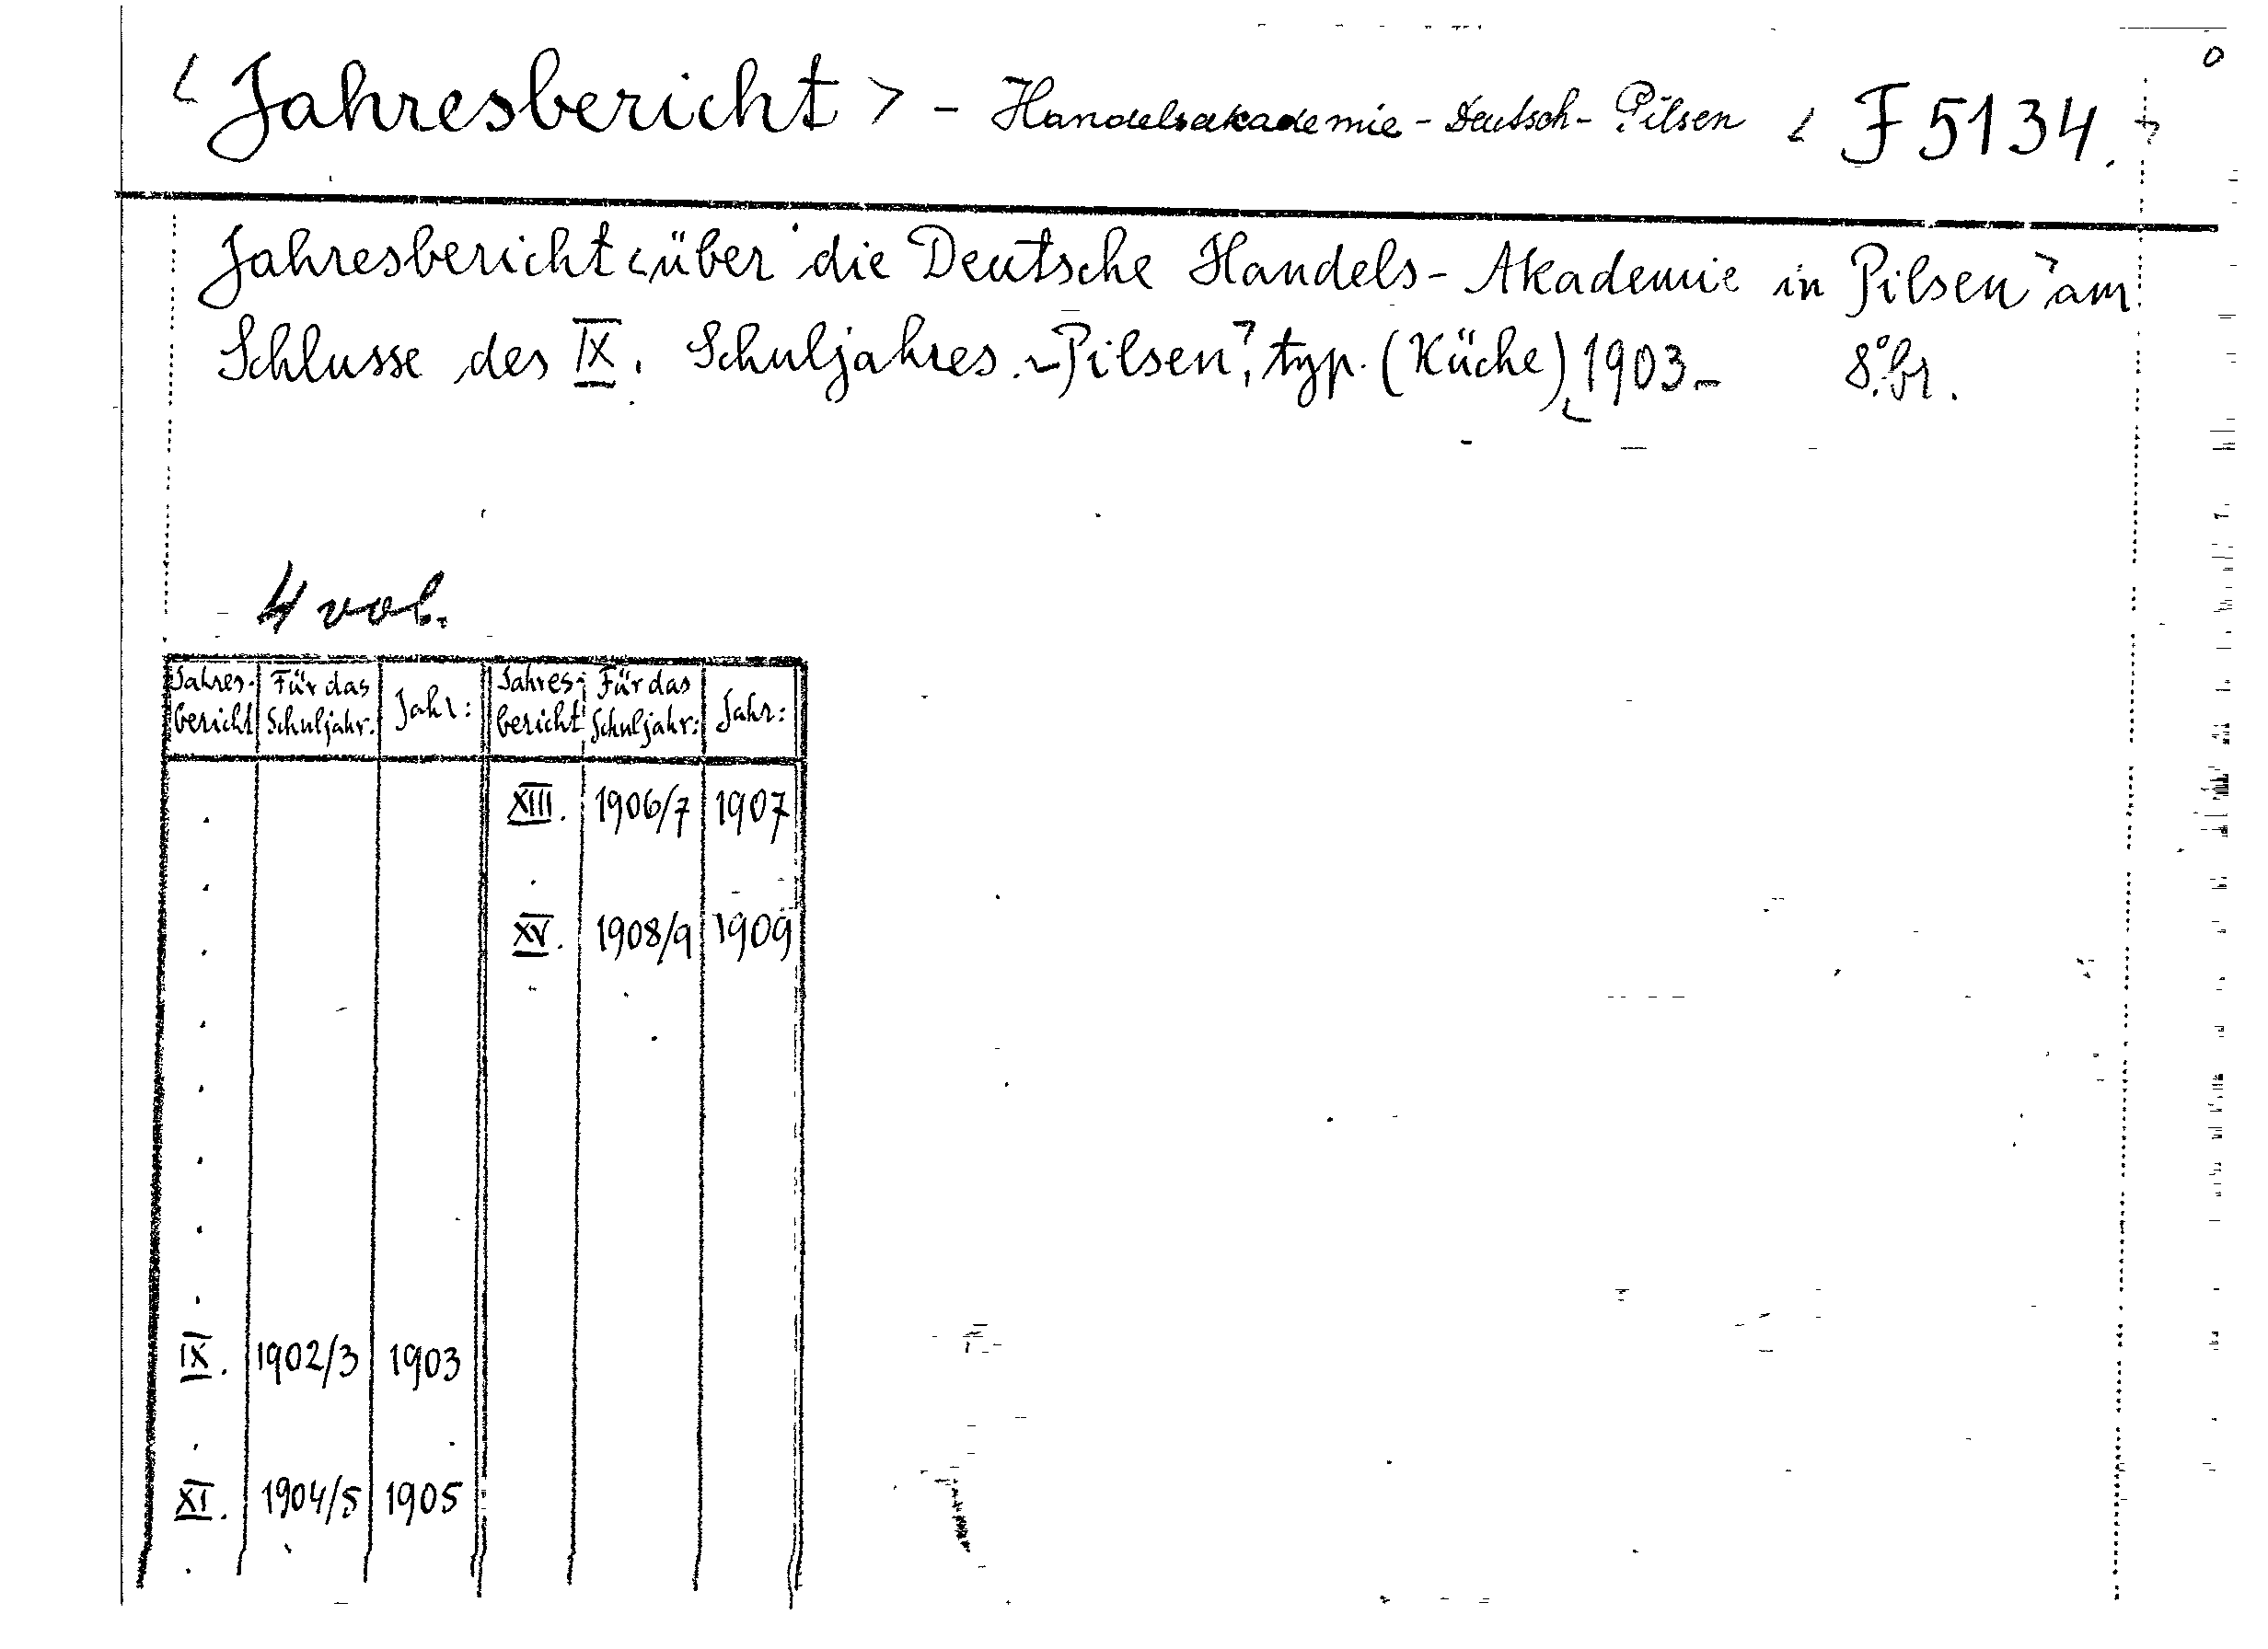 < Jahresbericht > - Handelsakademie - Deutsch - Pilsen < F 5134. >
Jahresbericht < über die Deutsche Handels - Akademie in Pilsen > am
Schlusse des IX. Schuljahres. - Pilsen, typ. (Küche) 1903 - 8.° br.
4 vol.
Jahres- bericht | Für das Schuljahr. | Jahr: | Jahres- bericht | Für das Schuljahr: | Jahr:
XIII. 1906/7 1907
XV. 1908/9 1909
IX. 1902/3 1903
XI. 1904/5 1905